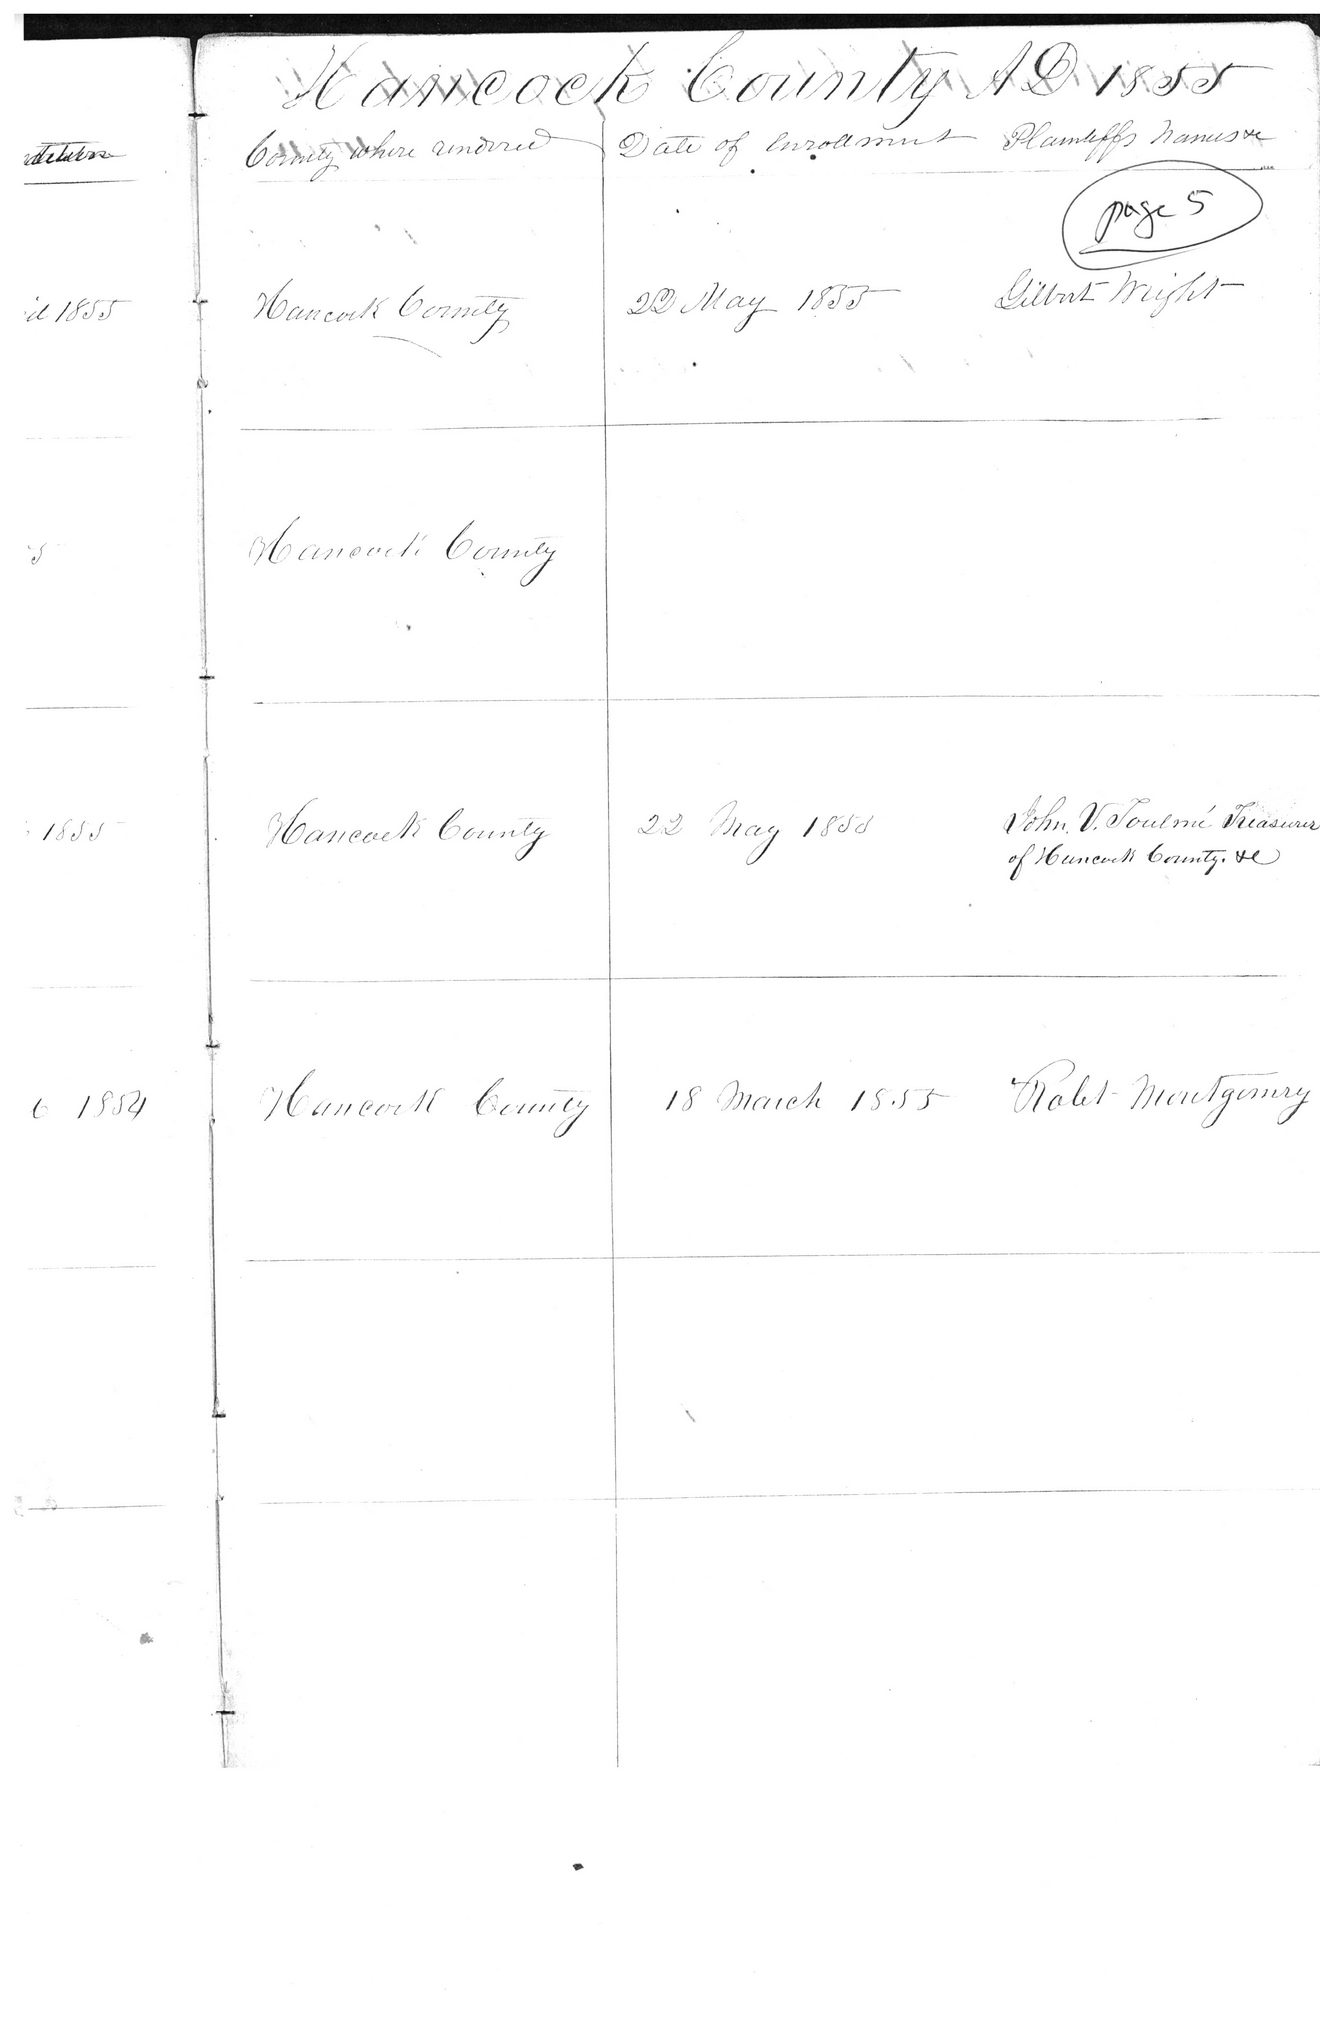 Hancock County AD 1855
County where rendered Date of Enrollment Plaintiffs Names &c
page 5
1855 Hancock County 22 May 1855 Gilbert Wright
Hancock County
1855 Hancock County 22 May 1855 John. V. Toulmé Treasurer
of Hancock County. &c
6 1854 Hancock County 18 March 1855 Robt Montgomry